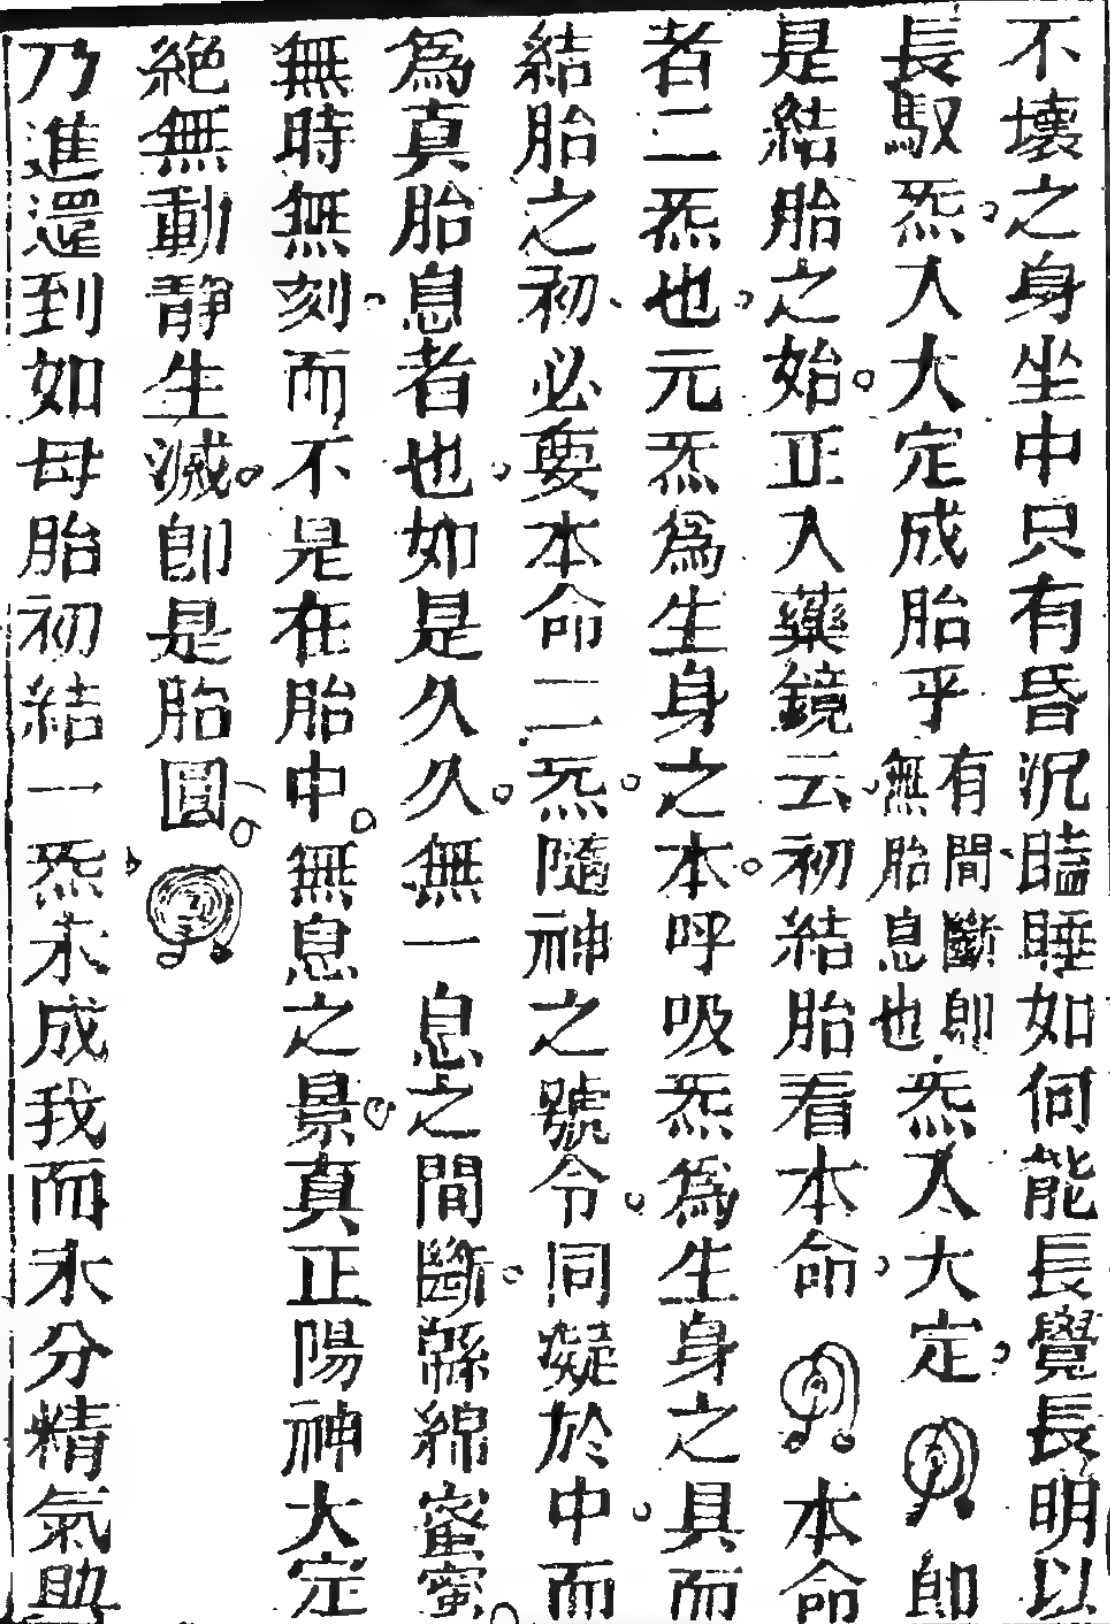 不壞之身坐中只有昏沉瞌睡如何能長覺長明以
長馭炁入大定成胎乎有間斷即無胎息也炁入大定即
是結胎之始正入藥鏡云初結胎看本命本命
者二炁也元炁為生身之本呼吸炁為生身之具而
結胎之初必要本命二炁隨神之號令同凝於中而
為真胎息者也如是久久無一息之間斷綿綿蜜蜜
無時無刻而不是在胎中無息之景真正陽神大定
絕無動靜生滅即是胎圓
乃進還到如母胎初結一炁未成我而未分精氣時